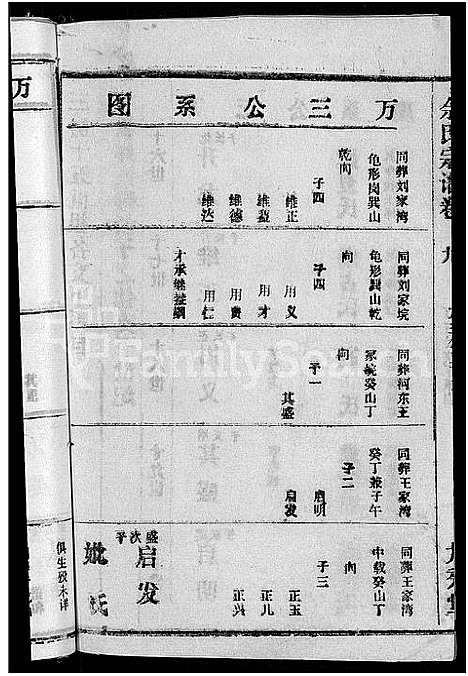 余氏宗谱卷
万三公系图
同葬刘家湾
龟形岗巽山
乾向
子四
维正
维益
维德
维达
同葬刘家垸
龟形巽山乾
向
子四
用义
用才
用贵
用仁
才承继益嗣
同葬河东王
家垸癸山丁
向
子一
其盛
同葬王家湾
癸丁兼子午
向
子二
启明
启发
同葬王家湾
中载癸山丁
向
子三
正玉
正儿
正兴
盛次子
启发
妣氏
俱生殁未详
万
FamilySearch